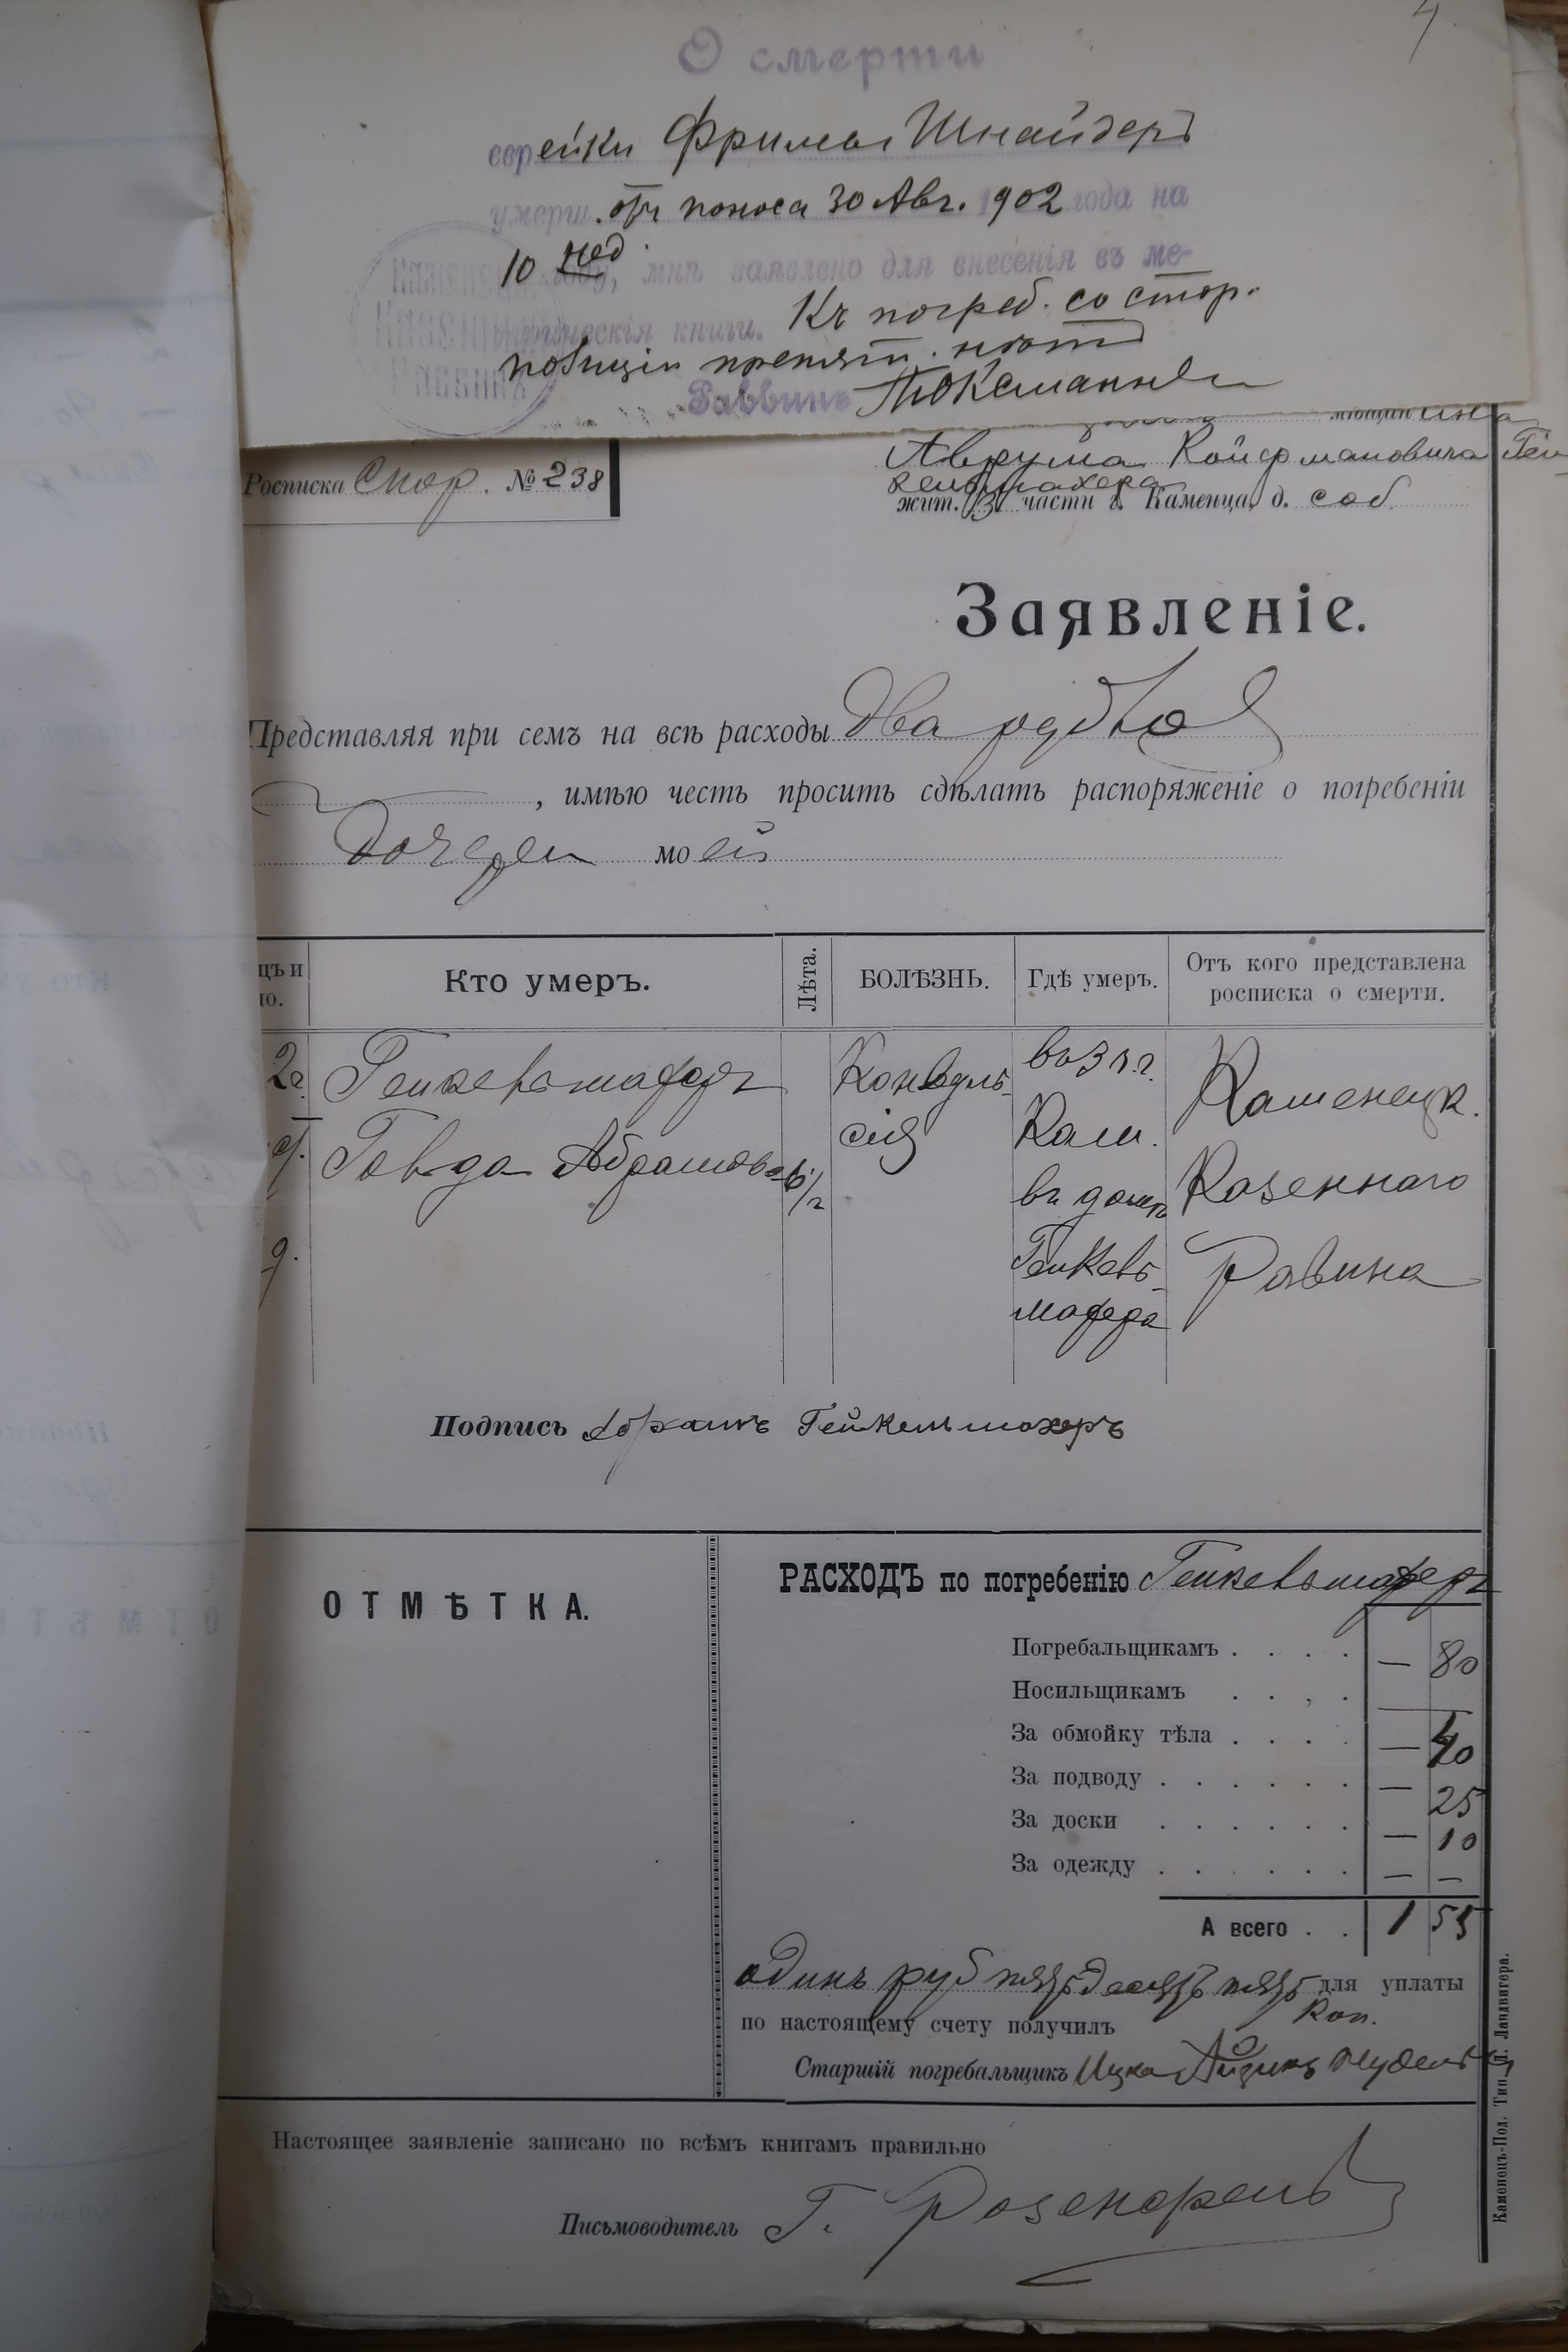 4
О смерти
еврейки Фримы Шнайдеръ
умерш. отъ поноса 30 Авг. 1902 года на
10 нед. году, мнѣ заявлено для внесенія въ ме-
трическія книги. Къ погреб. со стор.
полиціи препят. нѣтъ
Раввинъ
Каменец
Казенный
Раввинъ
мѣщанина
Аврума Койфмановича Гей
кельмахера
Росписка Скор. № 238
жит. 3 части г. Каменца, д. соб.
Заявленіе.
Представляя при семъ на всѣ расходы два рубля
, имѣю честь просить сдѣлать распоряженіе о погребеніи
дочери моей
цъ и
ло.
Кто умеръ.
Лѣта.
БОЛѢЗНЬ.
Гдѣ умеръ.
Отъ кого представлена
росписка о смерти.
Гейкельмахеръ
Говда Абрамова
Конвуль-
сія
въ 3 ч. г.
Кам.
въ домѣ
Гейкель-
махера
Каменецк.
Казеннаго
Равина
Подпись Абрамъ Гейкельмахеръ
ОТМѢТКА.
РАСХОДЪ по погребенію Гейкельмахеръ
Погребальщикамъ . . . . — 80
Носильщикамъ . . , . —
За обмойку тѣла . . . . — 40
За подводу . . . . . . — 25
За доски . . . . . . — 10
За одежду . . . . . . — —
А всего . . 1 55
одинъ руб пятьдесятъ пять для уплаты
коп.
по настоящему счету получилъ
Старшій погребальщикъ Ицко Айзикъ Нудель
Настоящее заявленіе записано по всѣмъ книгамъ правильно
Письмоводитель Г. Розенфельд
Каменецъ-Под. Тип. Л. Ландвигера.